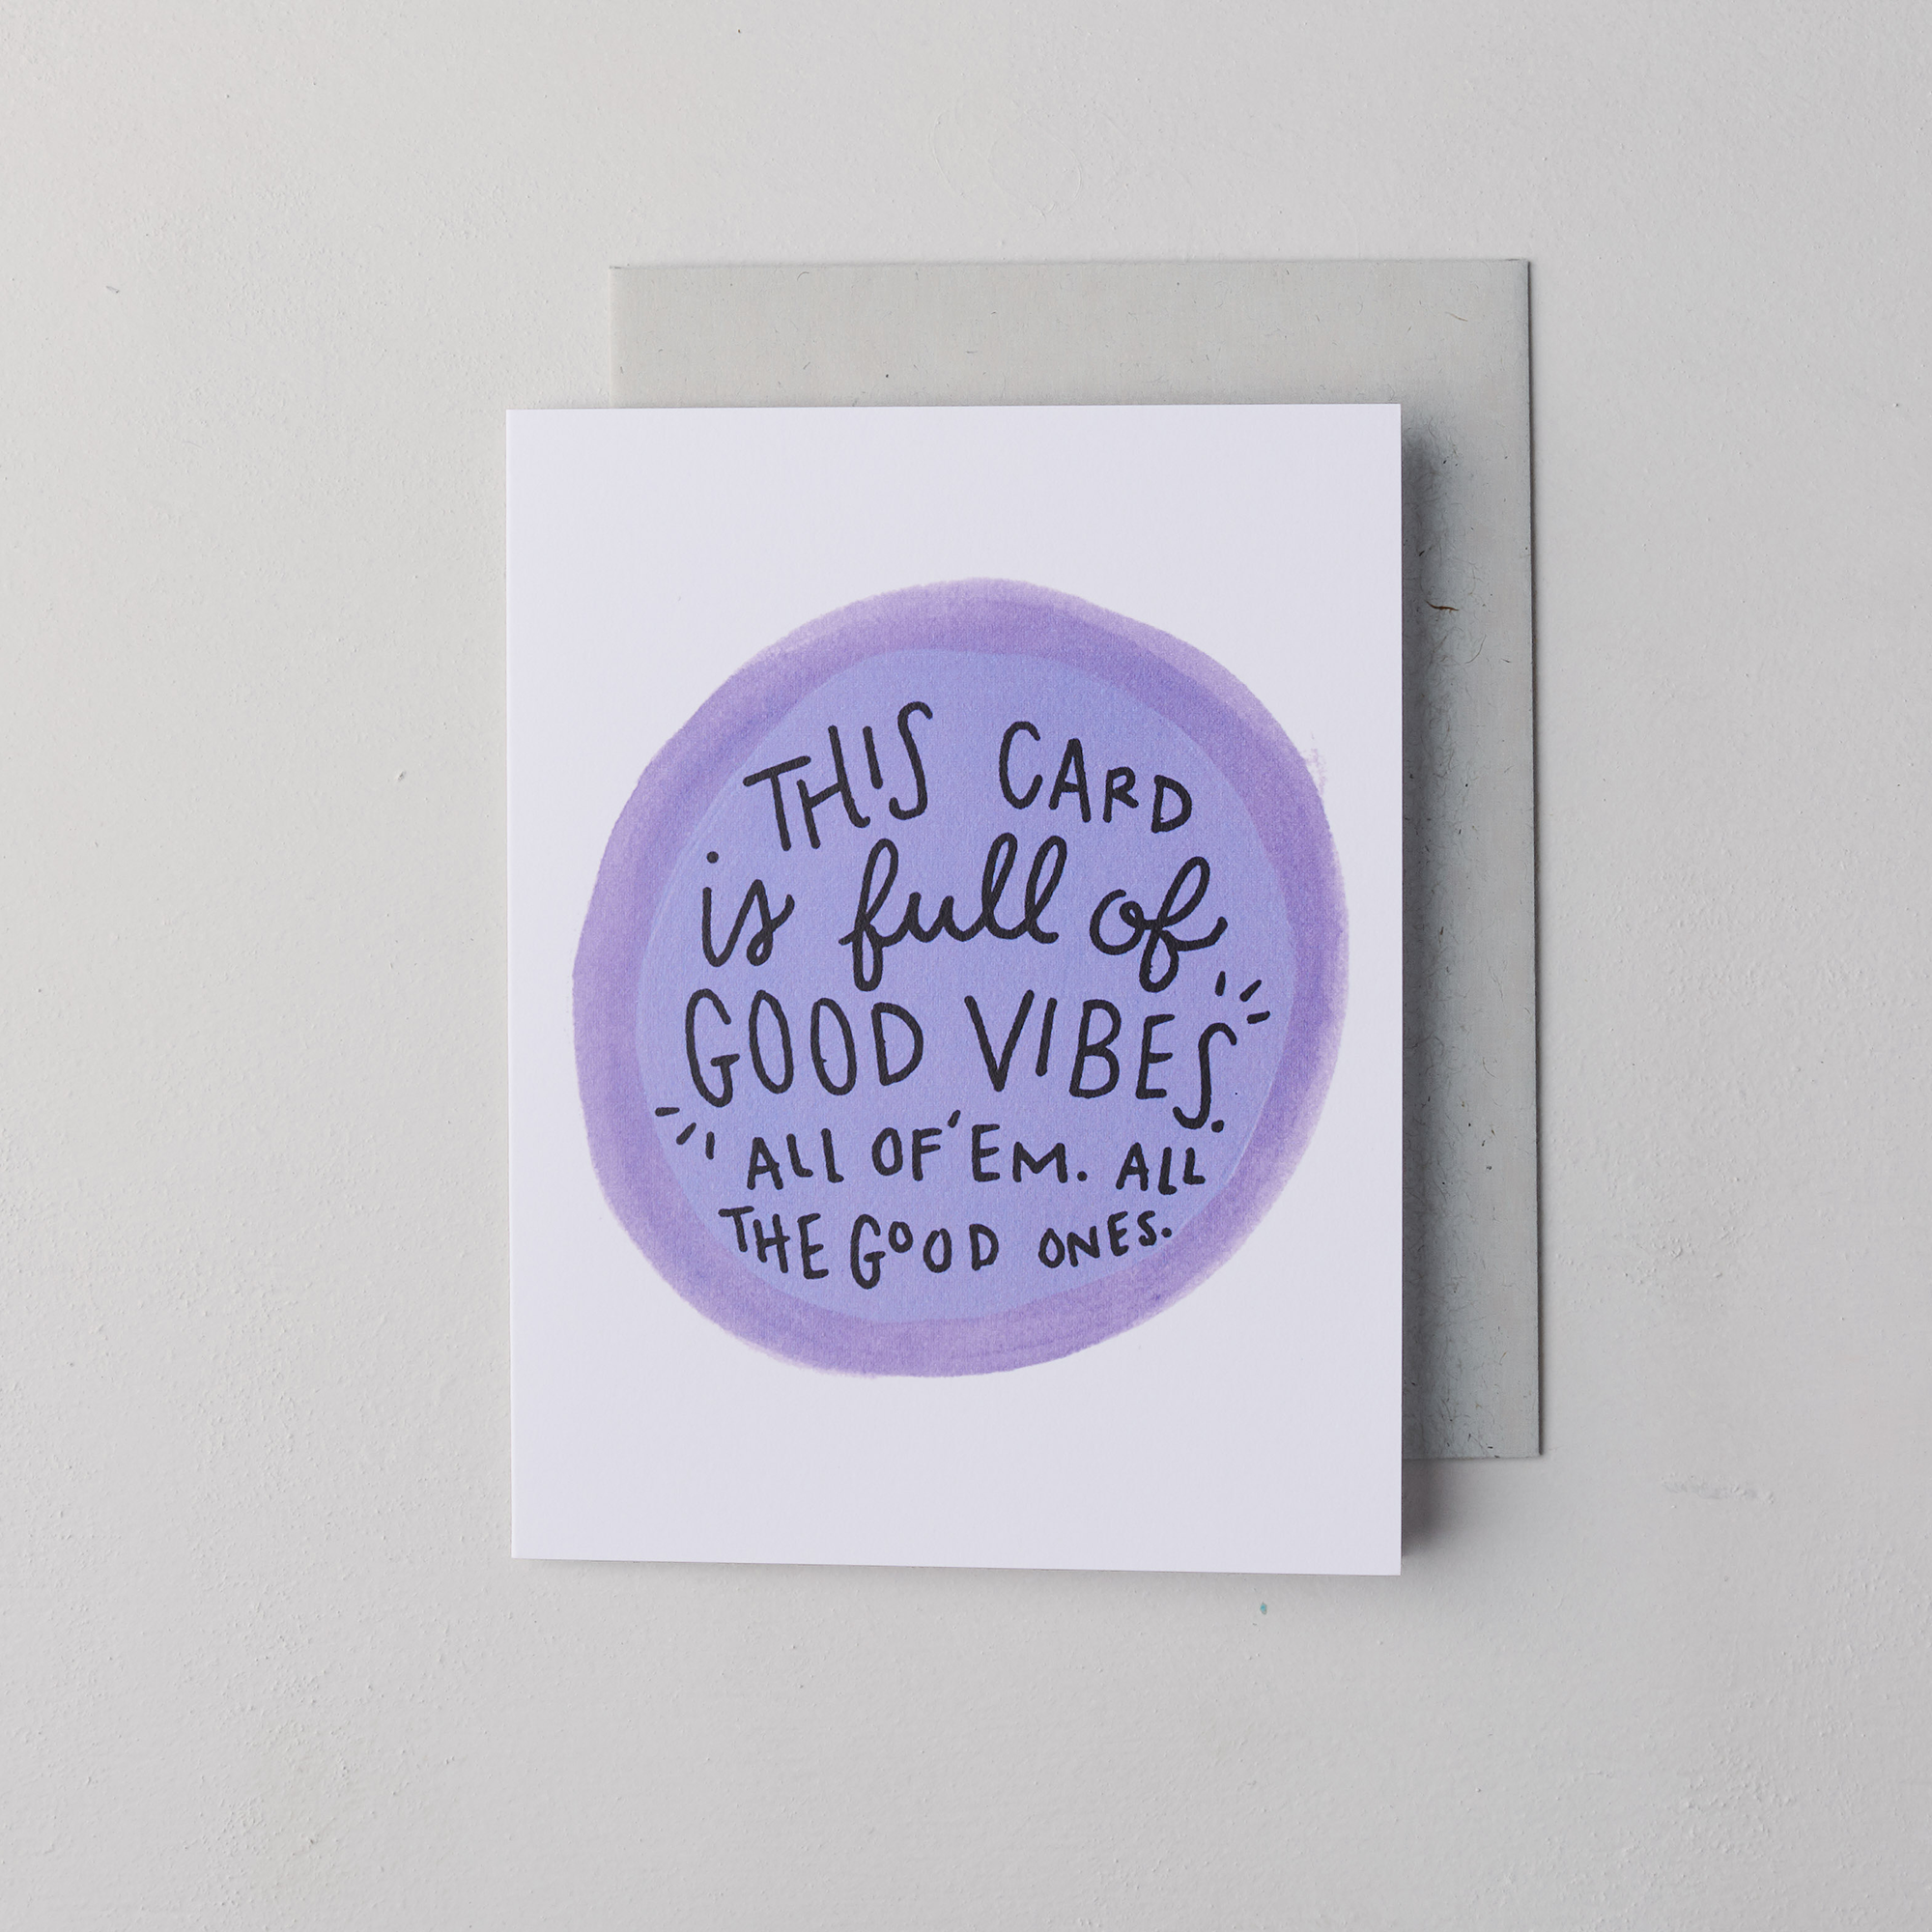 THIS CARD
is full of
GOOD VIBES.
ALL OF 'EM. ALL
THE GOOD ONES.